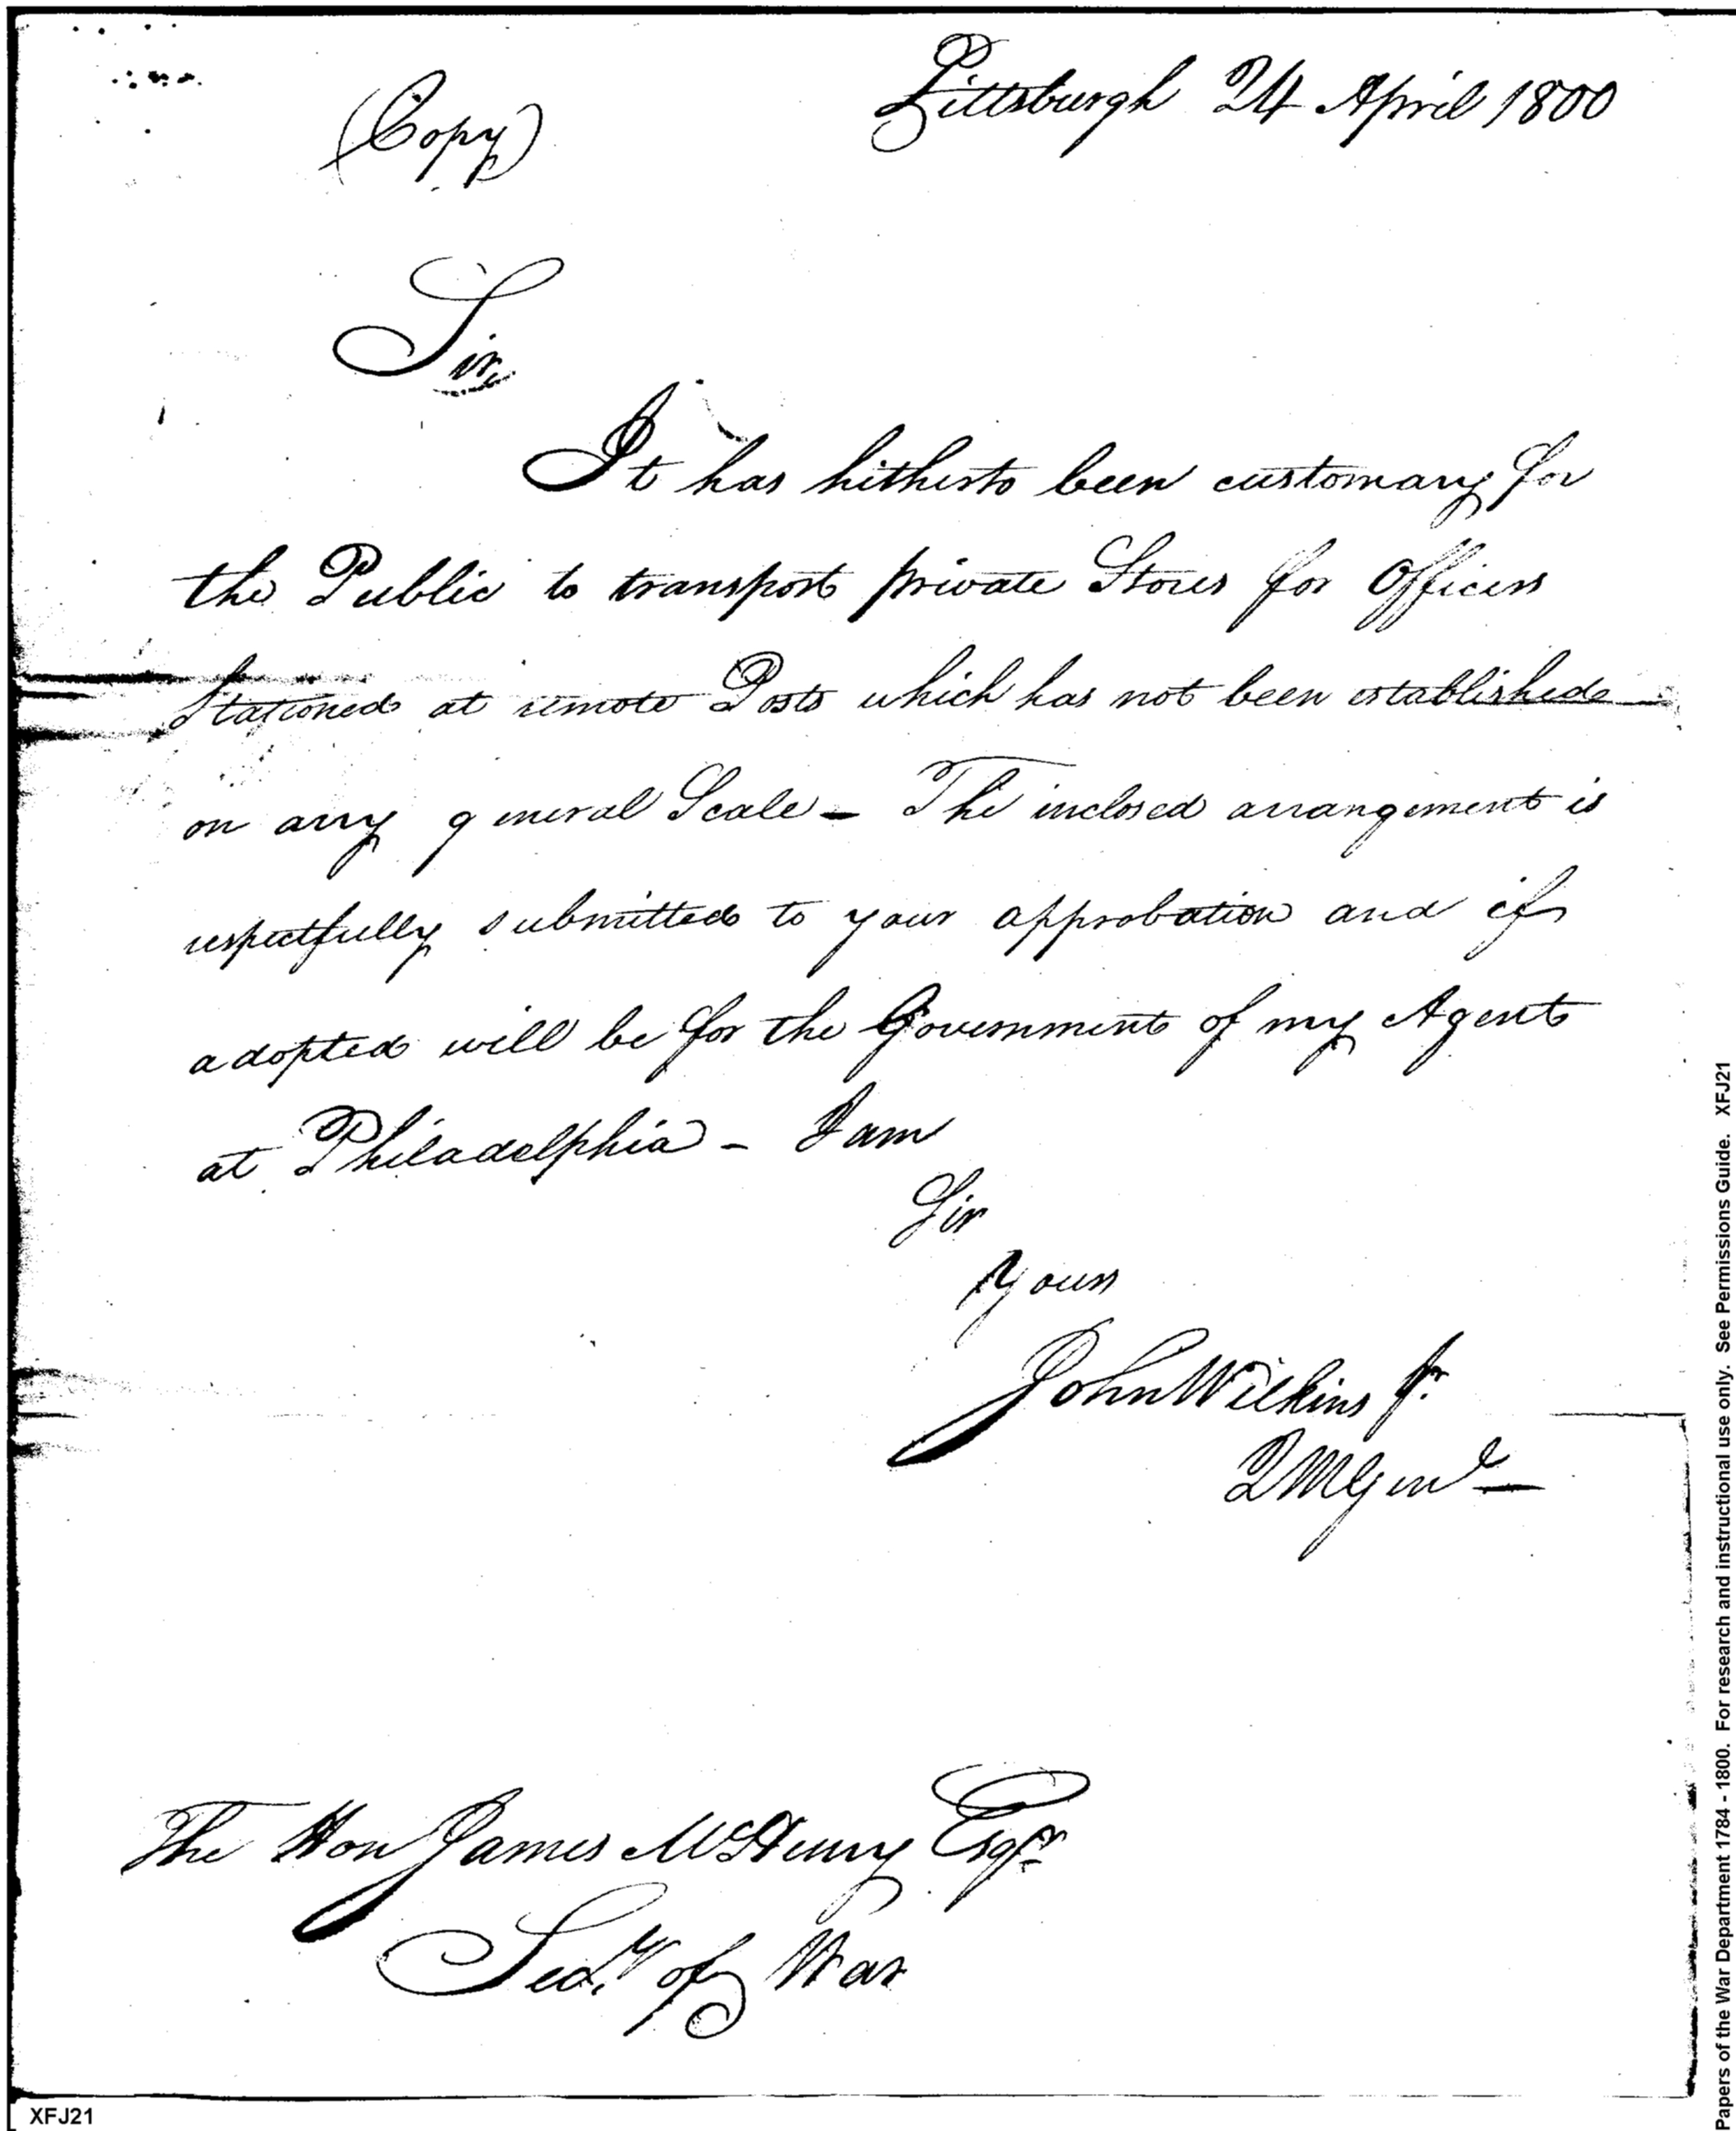 Pittsburgh 24 April 1800
(Copy)
Sir,
It has hitherto been customary for
the Public to transport private Stores for Officers
Stationed at remote Posts which has not been established
on any general Scale – The inclosed arrangement is
respectfully submitted to your approbation and if
adopted will be for the Government of my Agent
at Philadelphia – I am
Sir
Yours
John Wilkins Jr.
QMGenl —
The Hon James McHenry Esqr.
Secy. of War
XFJ21
Papers of the War Department 1784 - 1800. For research and instructional use only. See Permissions Guide. XFJ21